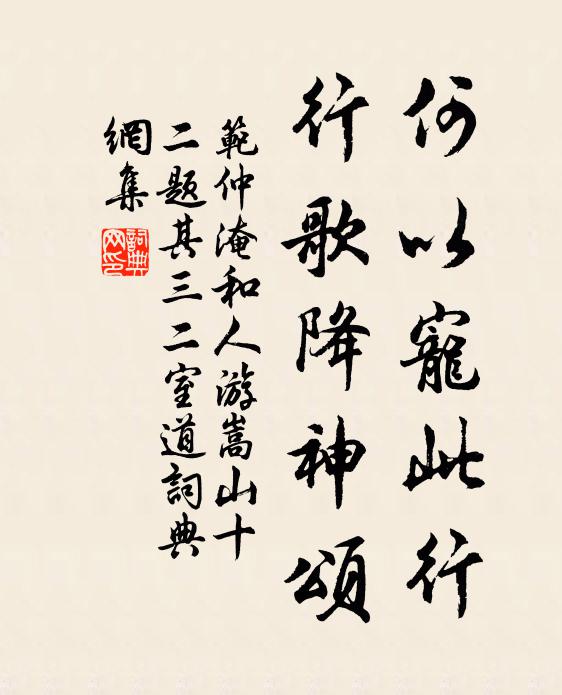 何以寵此行
行歌降神頌
範仲淹和人游嵩山十
二题其三二室道詞典
網集
詞典
网印